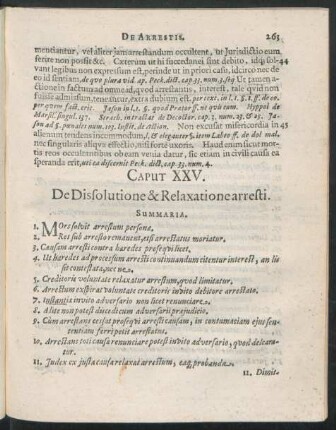 DE ARRESTIS. 263
mentiantur, vel aliter jam arrestandum occultent, ut Jurisdictio eum
ferire non possit &c. Cæterum ut hi succedanei sint debito, id si sol- 44
vant legibus non expressum est, perinde ut in priori casu, idcirco nec de
eo id sentiam, de quo plura vid. ap. Peck. dict. cap. 33. num. 3. seq. Ut tamen a-
ctione in factum ad omne id, quod arrestantis, interest, tale quid non
fuisse admissum, teneantur, extra dubium est, per text. in l. 1. §. ff. de eo,
per quem fact. erit. Jason in l. 1. §. quod Prætor ff. ni quis eum. Hyppol. de
Marsil. singul. 137. Serach. in tractat. de Decoctor. cap. 7. num. 23. & 25. Ja-
son ad §. pœnales num. 103. Instit. de action. Non excusat misericordia in 45
alienum tendens incommodum, l. & eleganter §. item Labeo ff. de dol. mal.
nec singularis aliquis effectio, nisi forte uxoris. Haud enim sicut mor-
tis reos occultantibus ob eam venia datur, sic etiam in civili causa ea
speranda erit, uti ea discernit Peck. dict. cap. 33. num. 4.
CAPUT XXV.
De Dissolutione & Relaxatione arresti.
SUMMARIA.
1. Mors solvit arrestum personæ.
2. Res sub arresto remanent, etsi arrestatus moriatur.
3. Causam arresti contra hæredes prosequi licet.
4. Ut hæredes ad processum arresti continuandum citentur interest, an li-
tis contestata, nec ne.
5. Creditoris voluntate relaxatur arrestum, quod limitatur.
6. Arrestum exspirat voluntate creditoris invito debitore arrestato.
7. Instantiæ invito adversario non licet renunciare.
8. A lite non potest discedi cum adversarii præjudicio.
9. Cùm arrestans cessat prosequi arresti causam, in contumaciam ejus sen-
tentiam ferri petit arrestatus.
10. Arrestans toti causæ renunciare potest invito adversario, quod declara-
tur.
11. Judex ex justa causa relaxat arrestum, eaq; probanda.
12. Dimit-